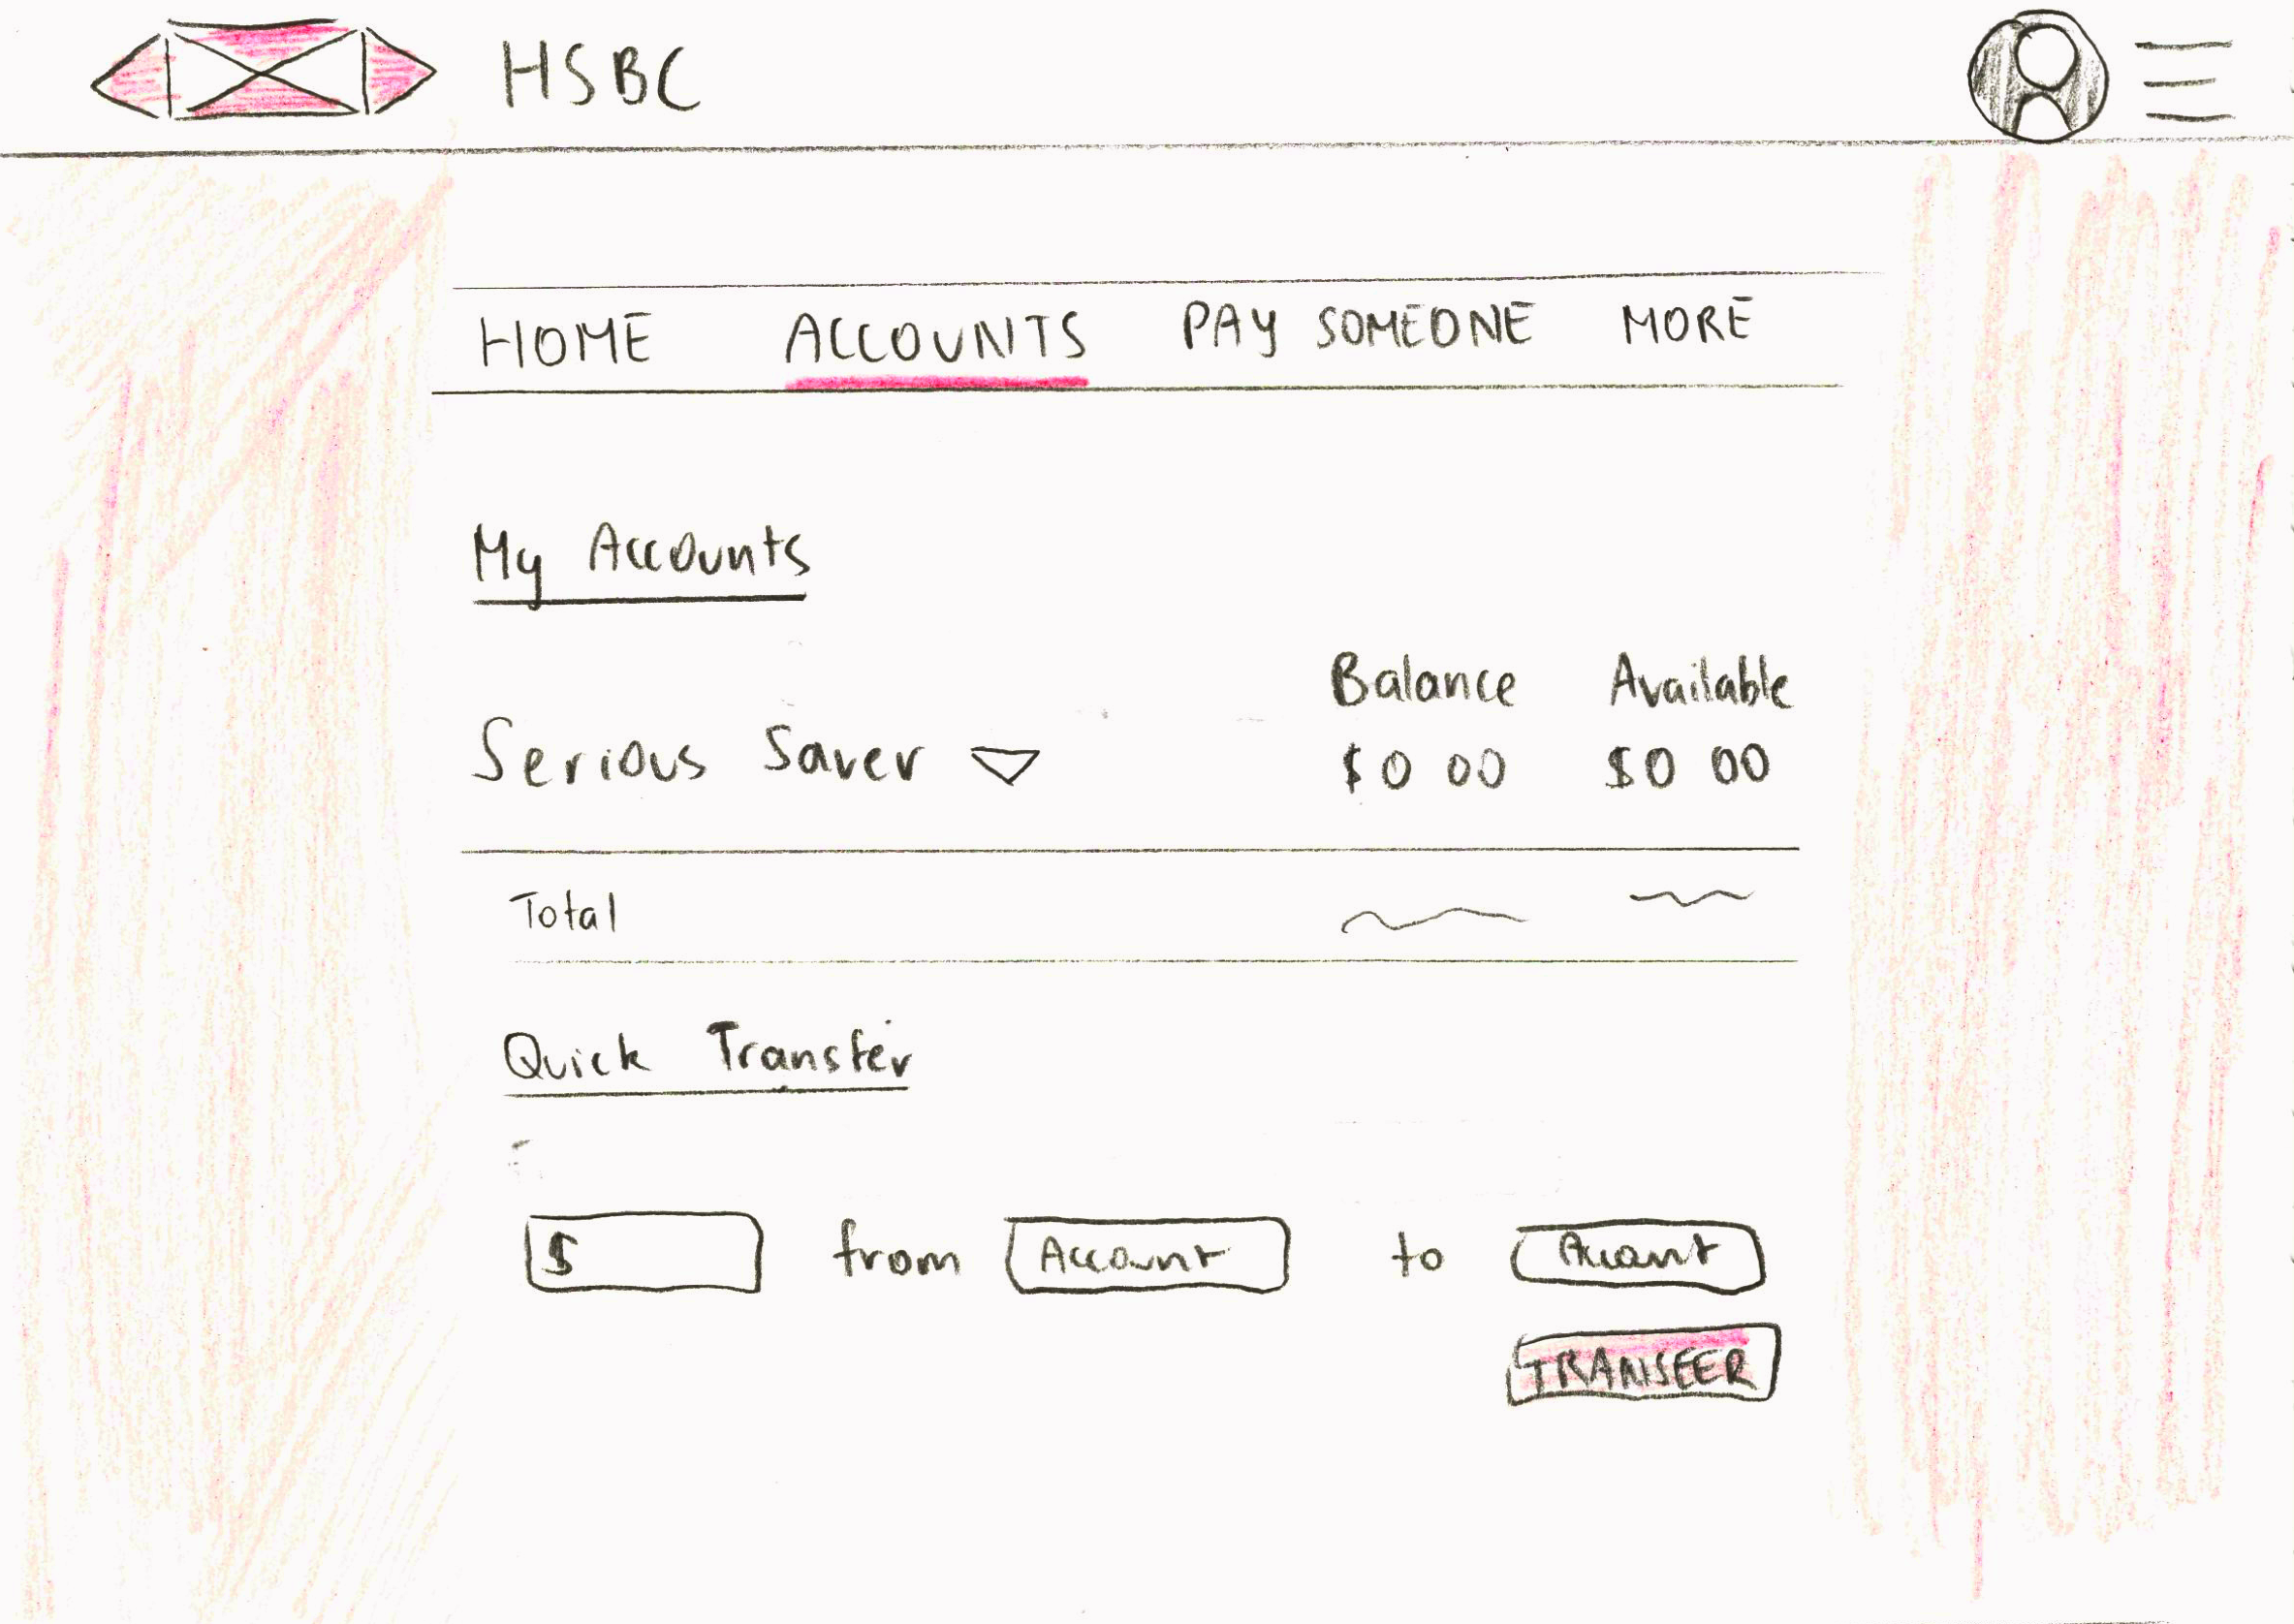 HSBC
HOME ACCOUNTS PAY SOMEONE MORE
My Accounts
Balance Available
Serious Saver $0 00 $0 00
Total
Quick Transfer
$ from Account to Account
TRANSFER